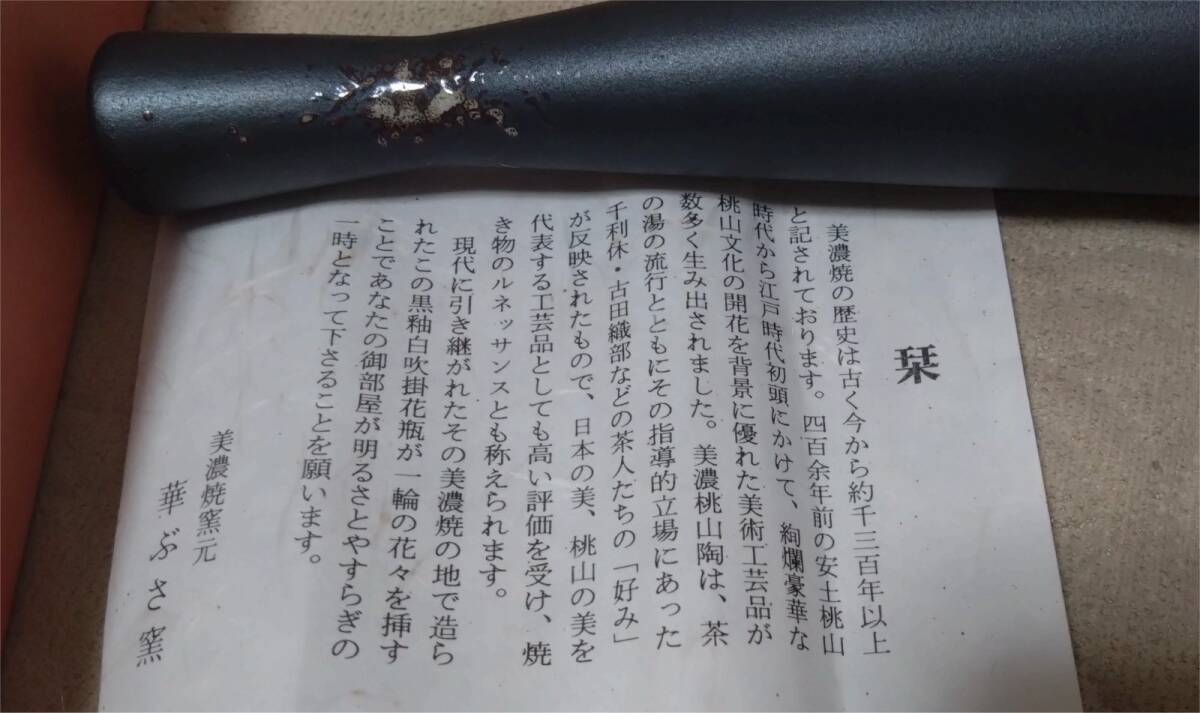 栞
美濃焼の歴史は古く今から約千三百年以上
と記されております。四百余年前の安土桃山
時代から江戸時代初頭にかけて、絢爛豪華な
桃山文化の開花を背景に優れた美術工芸品が
数多く生み出されました。美濃桃山陶は、茶
の湯の流行とともにその指導的立場にあった
千利休・古田織部などの茶人たちの「好み」
が反映されたもので、日本の美、桃山の美を
代表する工芸品としても高い評価を受け、焼
き物のルネッサンスとも称えられます。
現代に引き継がれたその美濃焼の地で造ら
れたこの黒釉白吹掛花瓶が一輪の花々を挿す
ことであなたの御部屋が明るさとやすらぎの
一時となって下さることを願います。
美濃焼窯元
華ぶさ窯